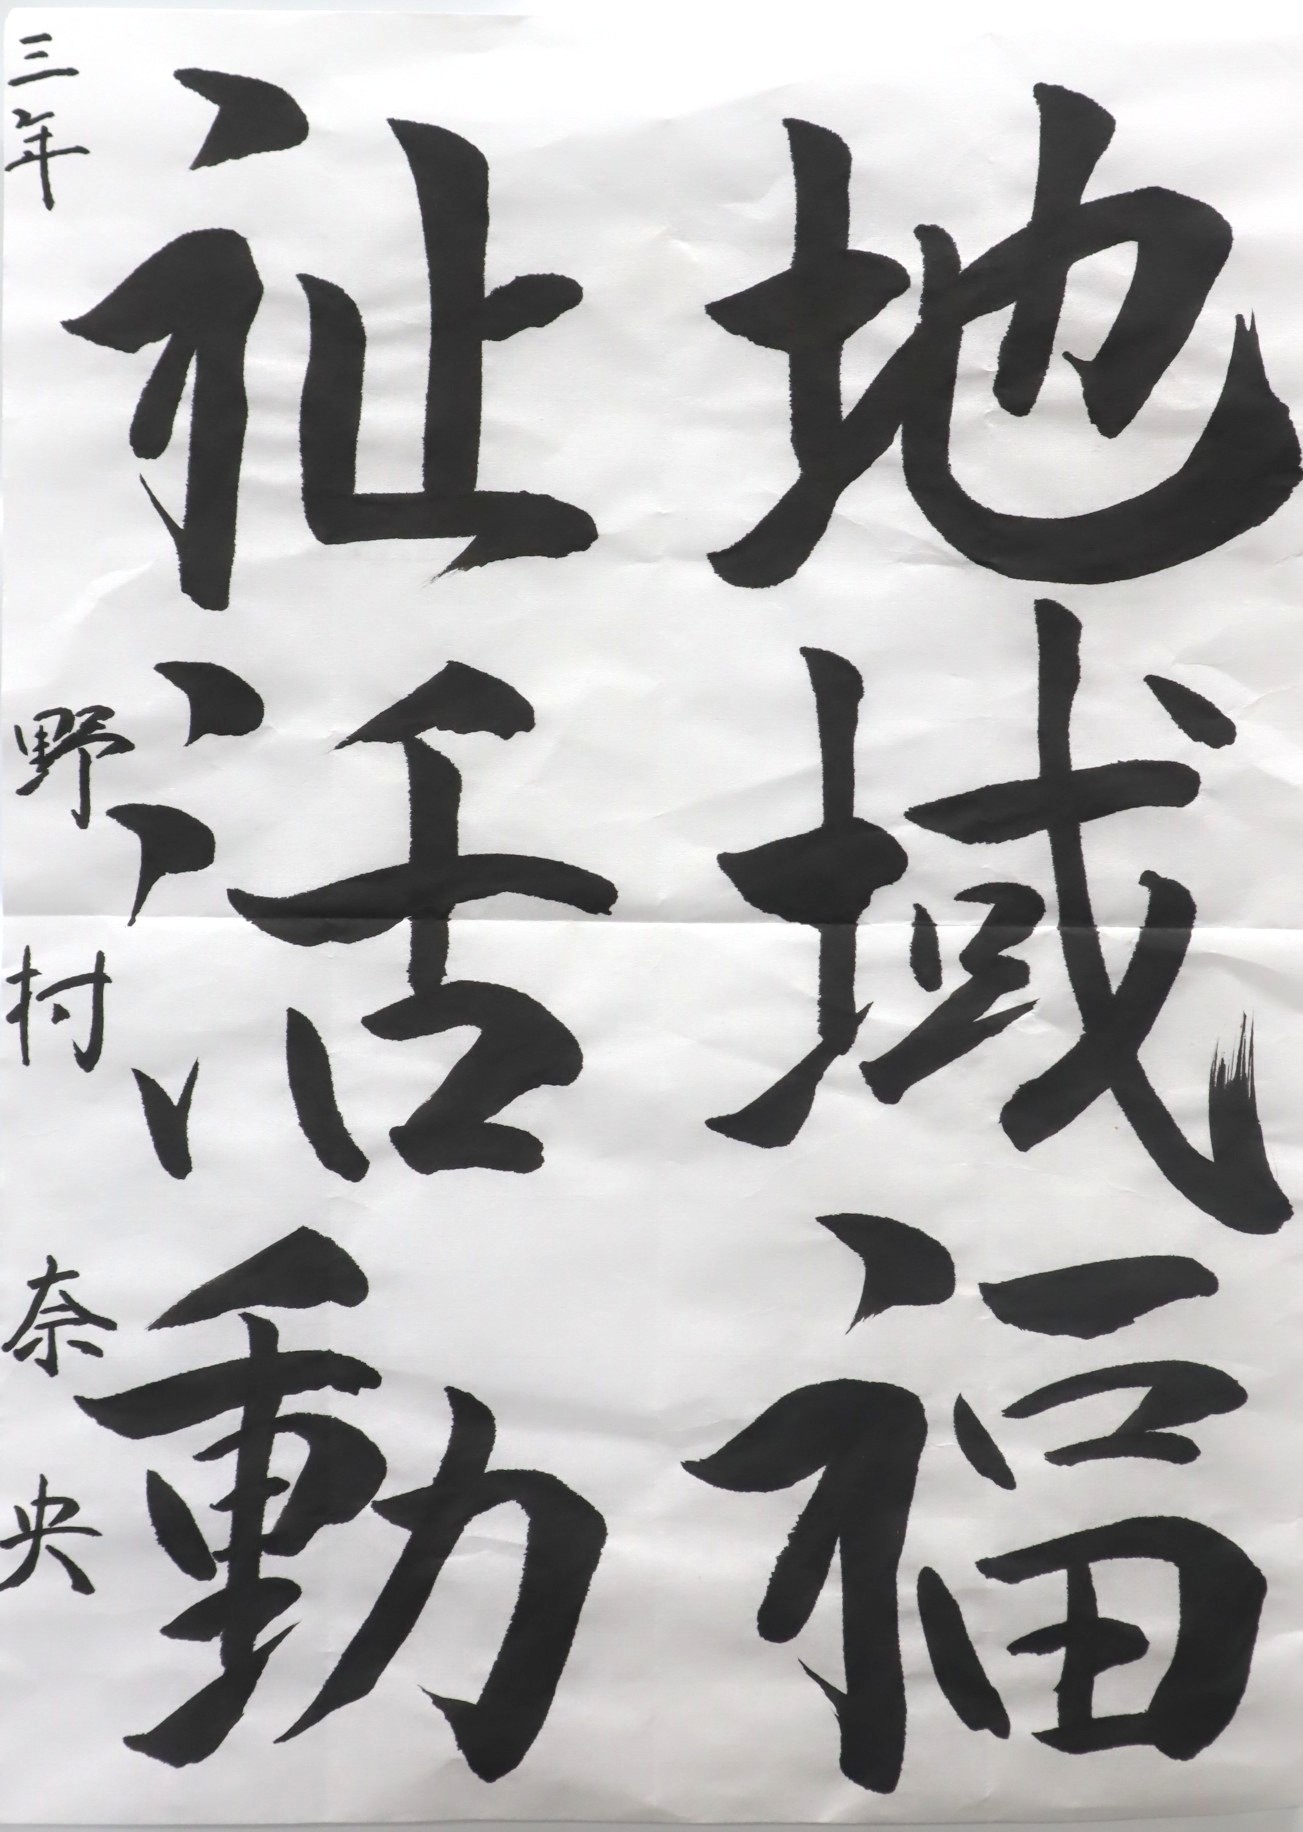 地域福
祉活動
三年 野村奈央